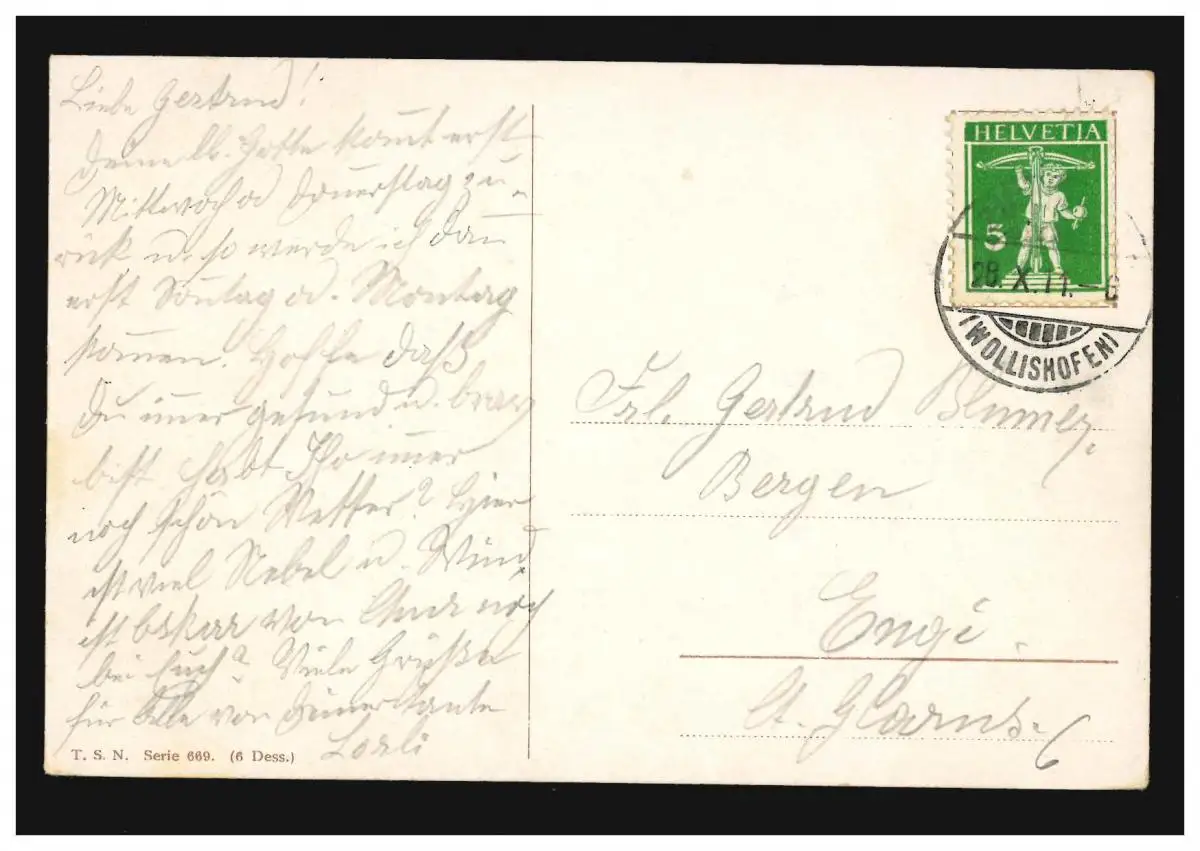 Liebe Gertrud!
Deine lb. Gotte kom̄t erst
Mittwoch od Don̄erstag zu-
rück u. so werde ich dan̄
erst Son̄tag od. Montag
kom̄en. Hoffe daß
Du im̄er gesund u. brav
bist. Habt Ihr im̄er
noch schön Wetter? Hier
ist viel Nebel u. Wind,
ist Oskar von Chur noch
bei Euch? Viele Grüße
für Alle von Deiner Tante
T. S. N. Serie 669. (6 Dess.)
HELVETIA
5
28. X. 11.
(WOLLISHOFEN)
Frl. Gertrud Blumer,
Bergen
Engi.
Ct. Glarus.